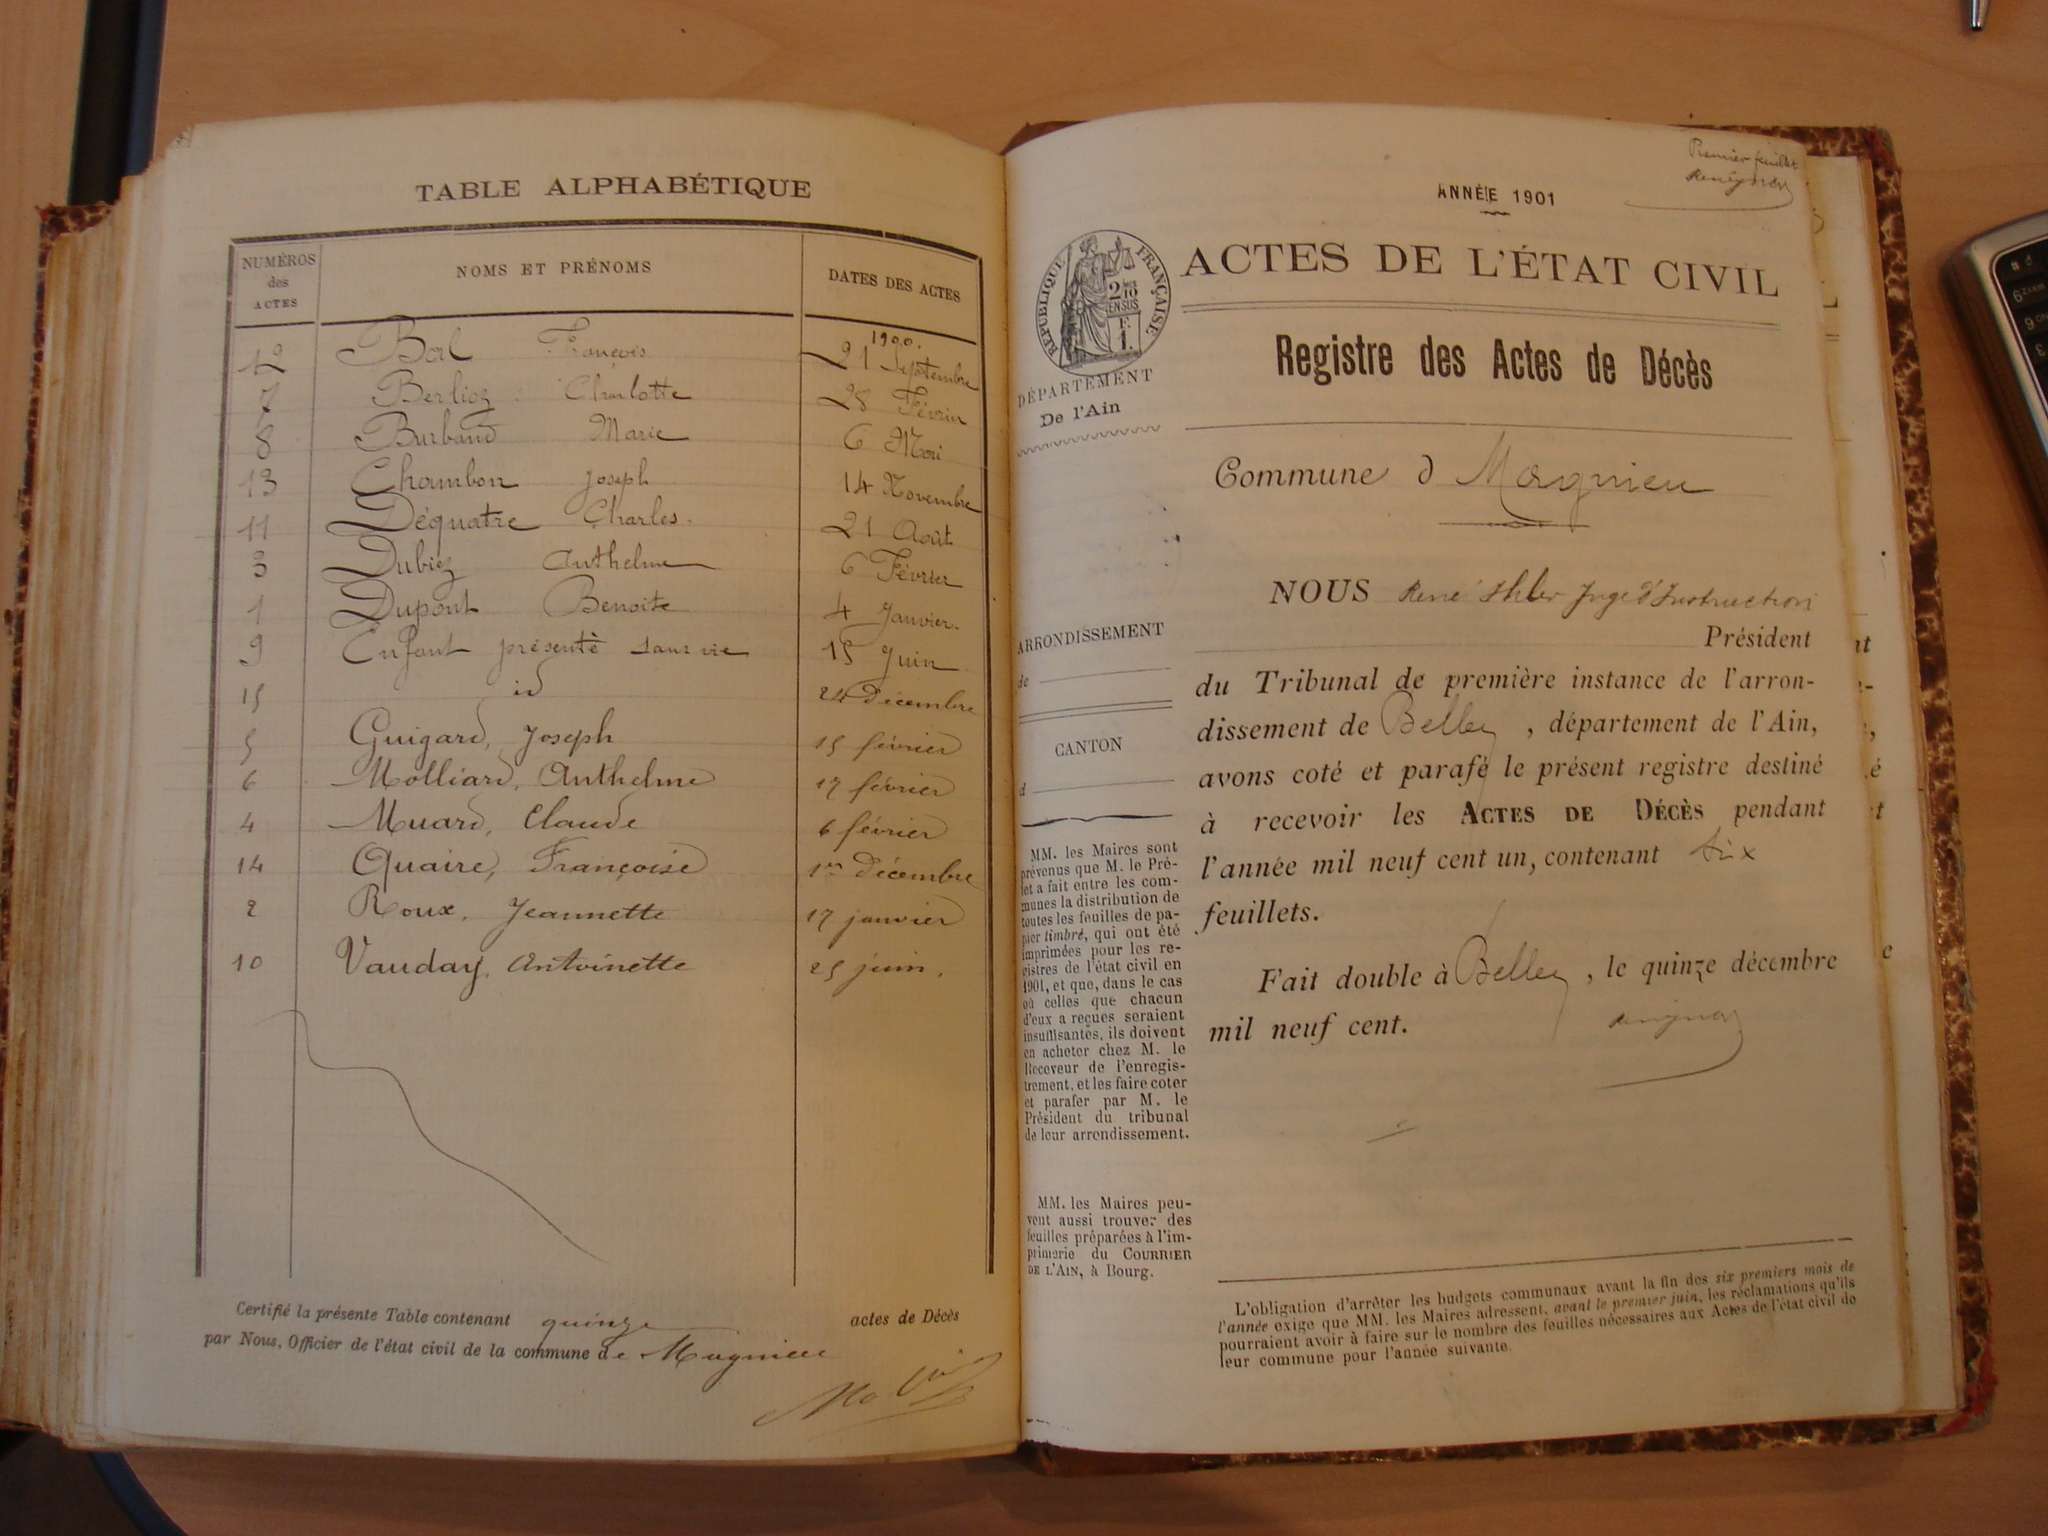 TABLE ALPHABÉTIQUE
NUMÉROS des ACTES NOMS ET PRÉNOMS DATES DES ACTES
1900.
12 Bal François 21 Septembre
7 Berlioz Charlotte 28 Février
8 Burband Marie 6 Mai
13 Chambon Joseph 14 Novembre
11 Déquatre Charles. 21 Août
3 Dubiez Anthelme 6 Février
1 Dupont Benoite 4 Janvier.
9 Enfant présenté sans vie 15 Juin
15 id 24 Décembre
5 Guigard, Joseph 15 février
6 Molliard, Anthelme 17 février
4 Muard, Claude 6 février
14 Quaire, Françoise 1er Décembre
2 Roux, Jeannette 17 janvier
10 Vauday, Antoinette 25 juin.
Certifié la présente Table contenant quinze actes de Décès
par Nous, Officier de l'état civil de la commune de Magnieu
Premier feuillet
ANNÉE 1901
RÉPUBLIQUE FRANÇAISE
2/10 EN SUS
F. 1.
ACTES DE L'ÉTAT CIVIL
DÉPARTEMENT
De l'Ain
Registre des Actes de Décès
Commune d Magnieu
ARRONDISSEMENT
de
CANTON
d
MM. les Maires sont
prévenus que M. le Pré-
fet a fait entre les com-
munes la distribution de
toutes les feuilles de pa-
pier timbré, qui ont été
imprimées pour les re-
gistres de l'état civil en
1901, et que, dans le cas
où celles que chacun
d'eux a reçues seraient
insuffisantes, ils doivent
en acheter chez M. le
Receveur de l'enregis-
trement, et les faire coter
et parafer par M. le
Président du tribunal
de leur arrondissement.
MM. les Maires peu-
vent aussi trouver des
feuilles préparées à l'im-
primerie du COURRIER
DE L'AIN, à Bourg.
NOUS René Juge d'Instruction
Président
du Tribunal de première instance de l'arron-
dissement de Belley, département de l'Ain,
avons coté et parafé le présent registre destiné
à recevoir les ACTES DE DÉCÈS pendant
l'année mil neuf cent un, contenant six
feuillets.
Fait double à Belley, le quinze décembre
mil neuf cent.
L'obligation d'arrêter les budgets communaux avant la fin des six premiers mois de
l'année exige que MM. les Maires adressent, avant le premier juin, les réclamations qu'ils
pourraient avoir à faire sur le nombre des feuilles nécessaires aux Actes de l'état civil de
leur commune pour l'année suivante.